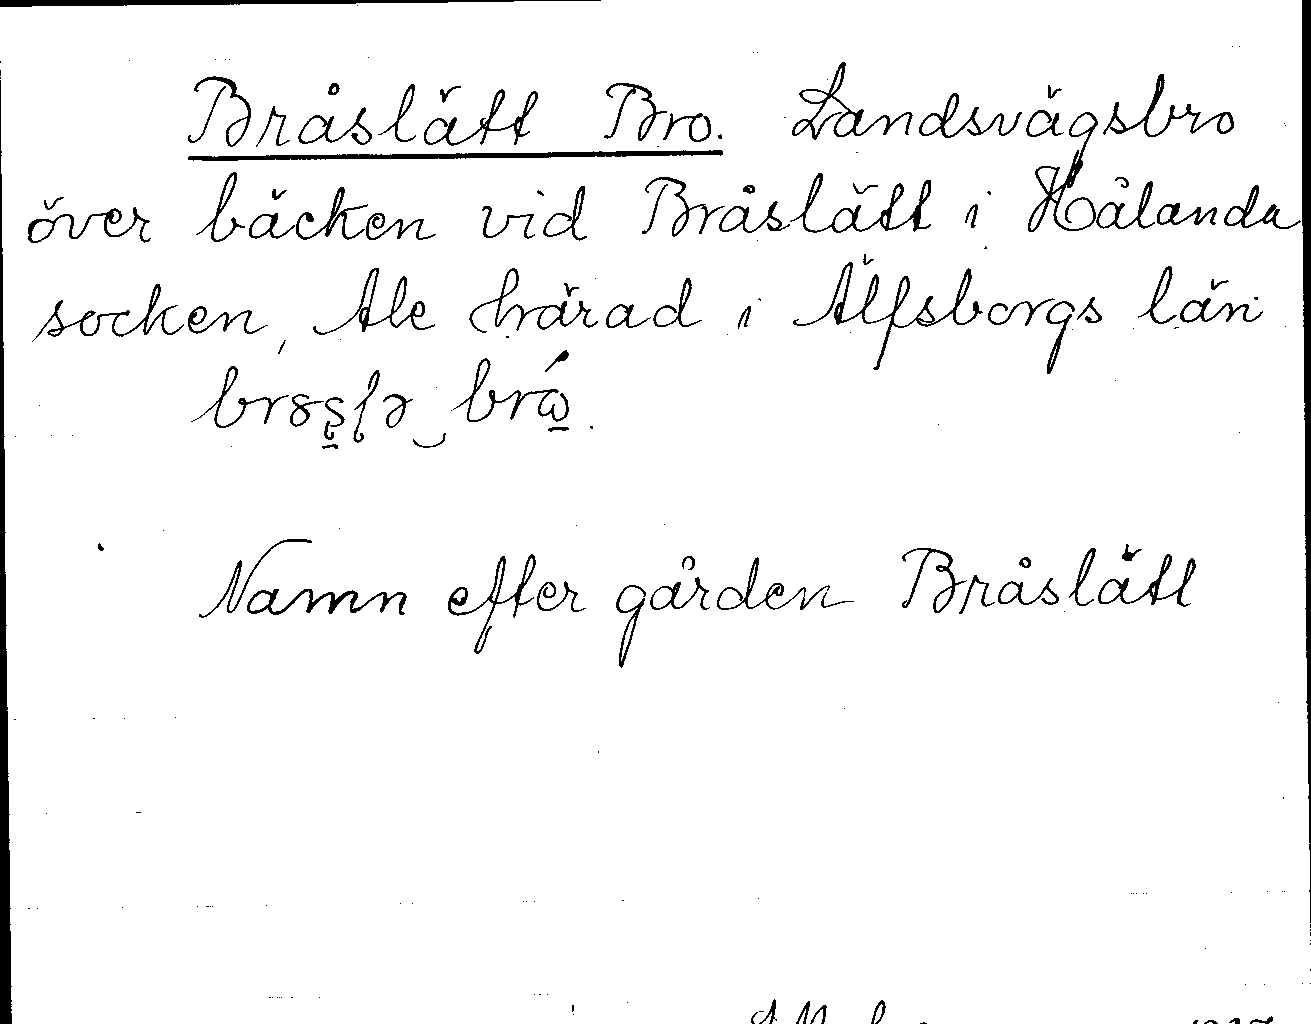 Bråslätt Bro. Landsvägsbro
över bäcken vid Bråslätt i Hålanda
socken, Ale härad i Älfsborgs län
Namn efter gården Bråslätt